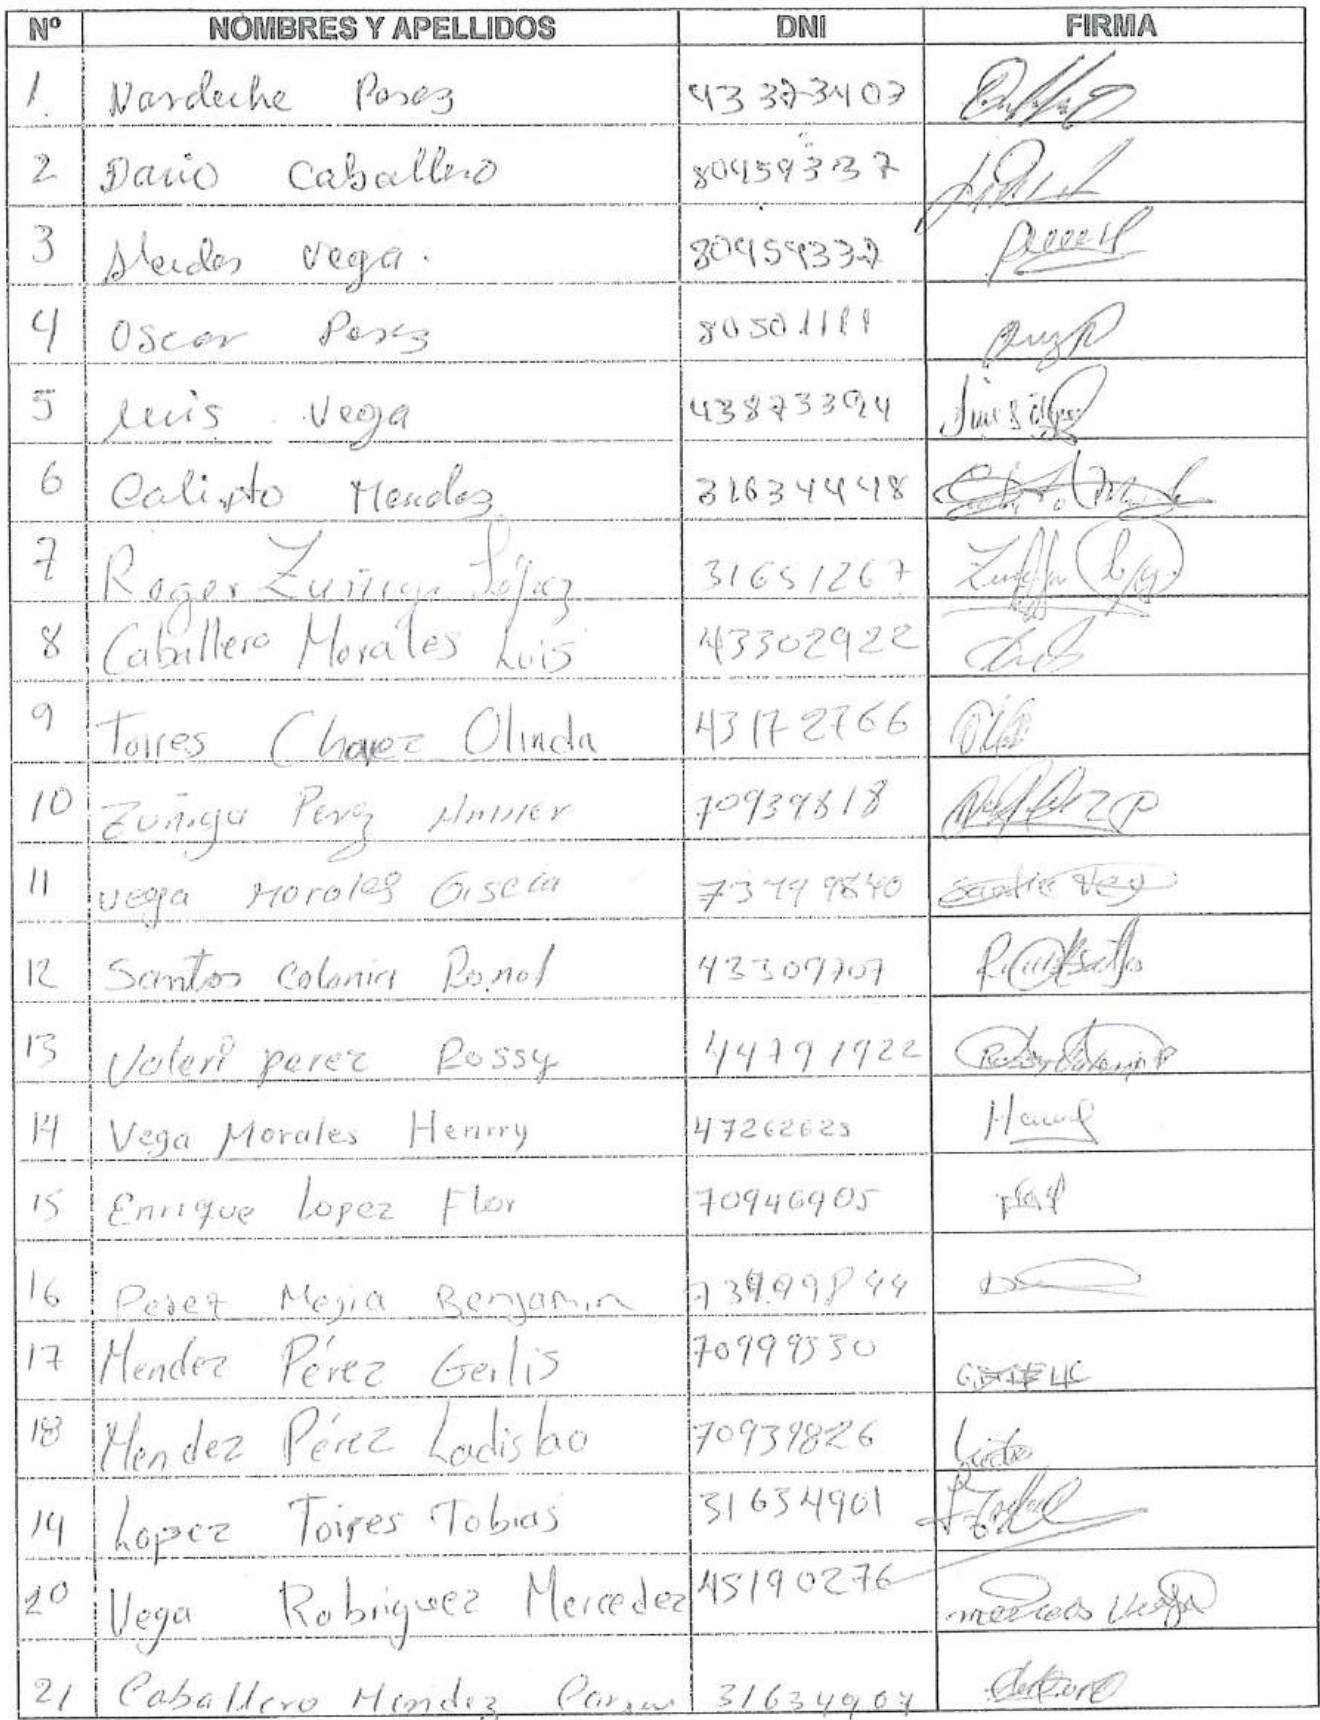 Nº NOMBRES Y APELLIDOS DNI FIRMA
1. Nardeche Perez 43373403
2 Dario Caballero 80459337
3 vega. 80459337
4 Oscar Perez 80501111
5 Luis Vega 43873394
6 Calixto Mendez 31634448
7 Roger Zuñiga López 31651267
8 Caballero Morales Luis 43302922
9 Torres Chavez Olinda 43172766
10 Zuñiga Perez 70939818
11 vega Morales Gisela 73499840
12 Santos Colonia Ronal 43309707
13 Valeri perez Rossy 44791922
14 Vega Morales Henrry 47262623 Henry
15 Enrique Lopez Flor 70946905
16 Perez Mejia Benjamin 73499844
17 Mendez Pérez Gerlis 70999330
18 Mendez Pérez Ladislao 70939826
19 Lopez Torres Tobias 31634901
20 Vega Robriguez Mercedez 45190276
21 Caballero Mendez 31634907